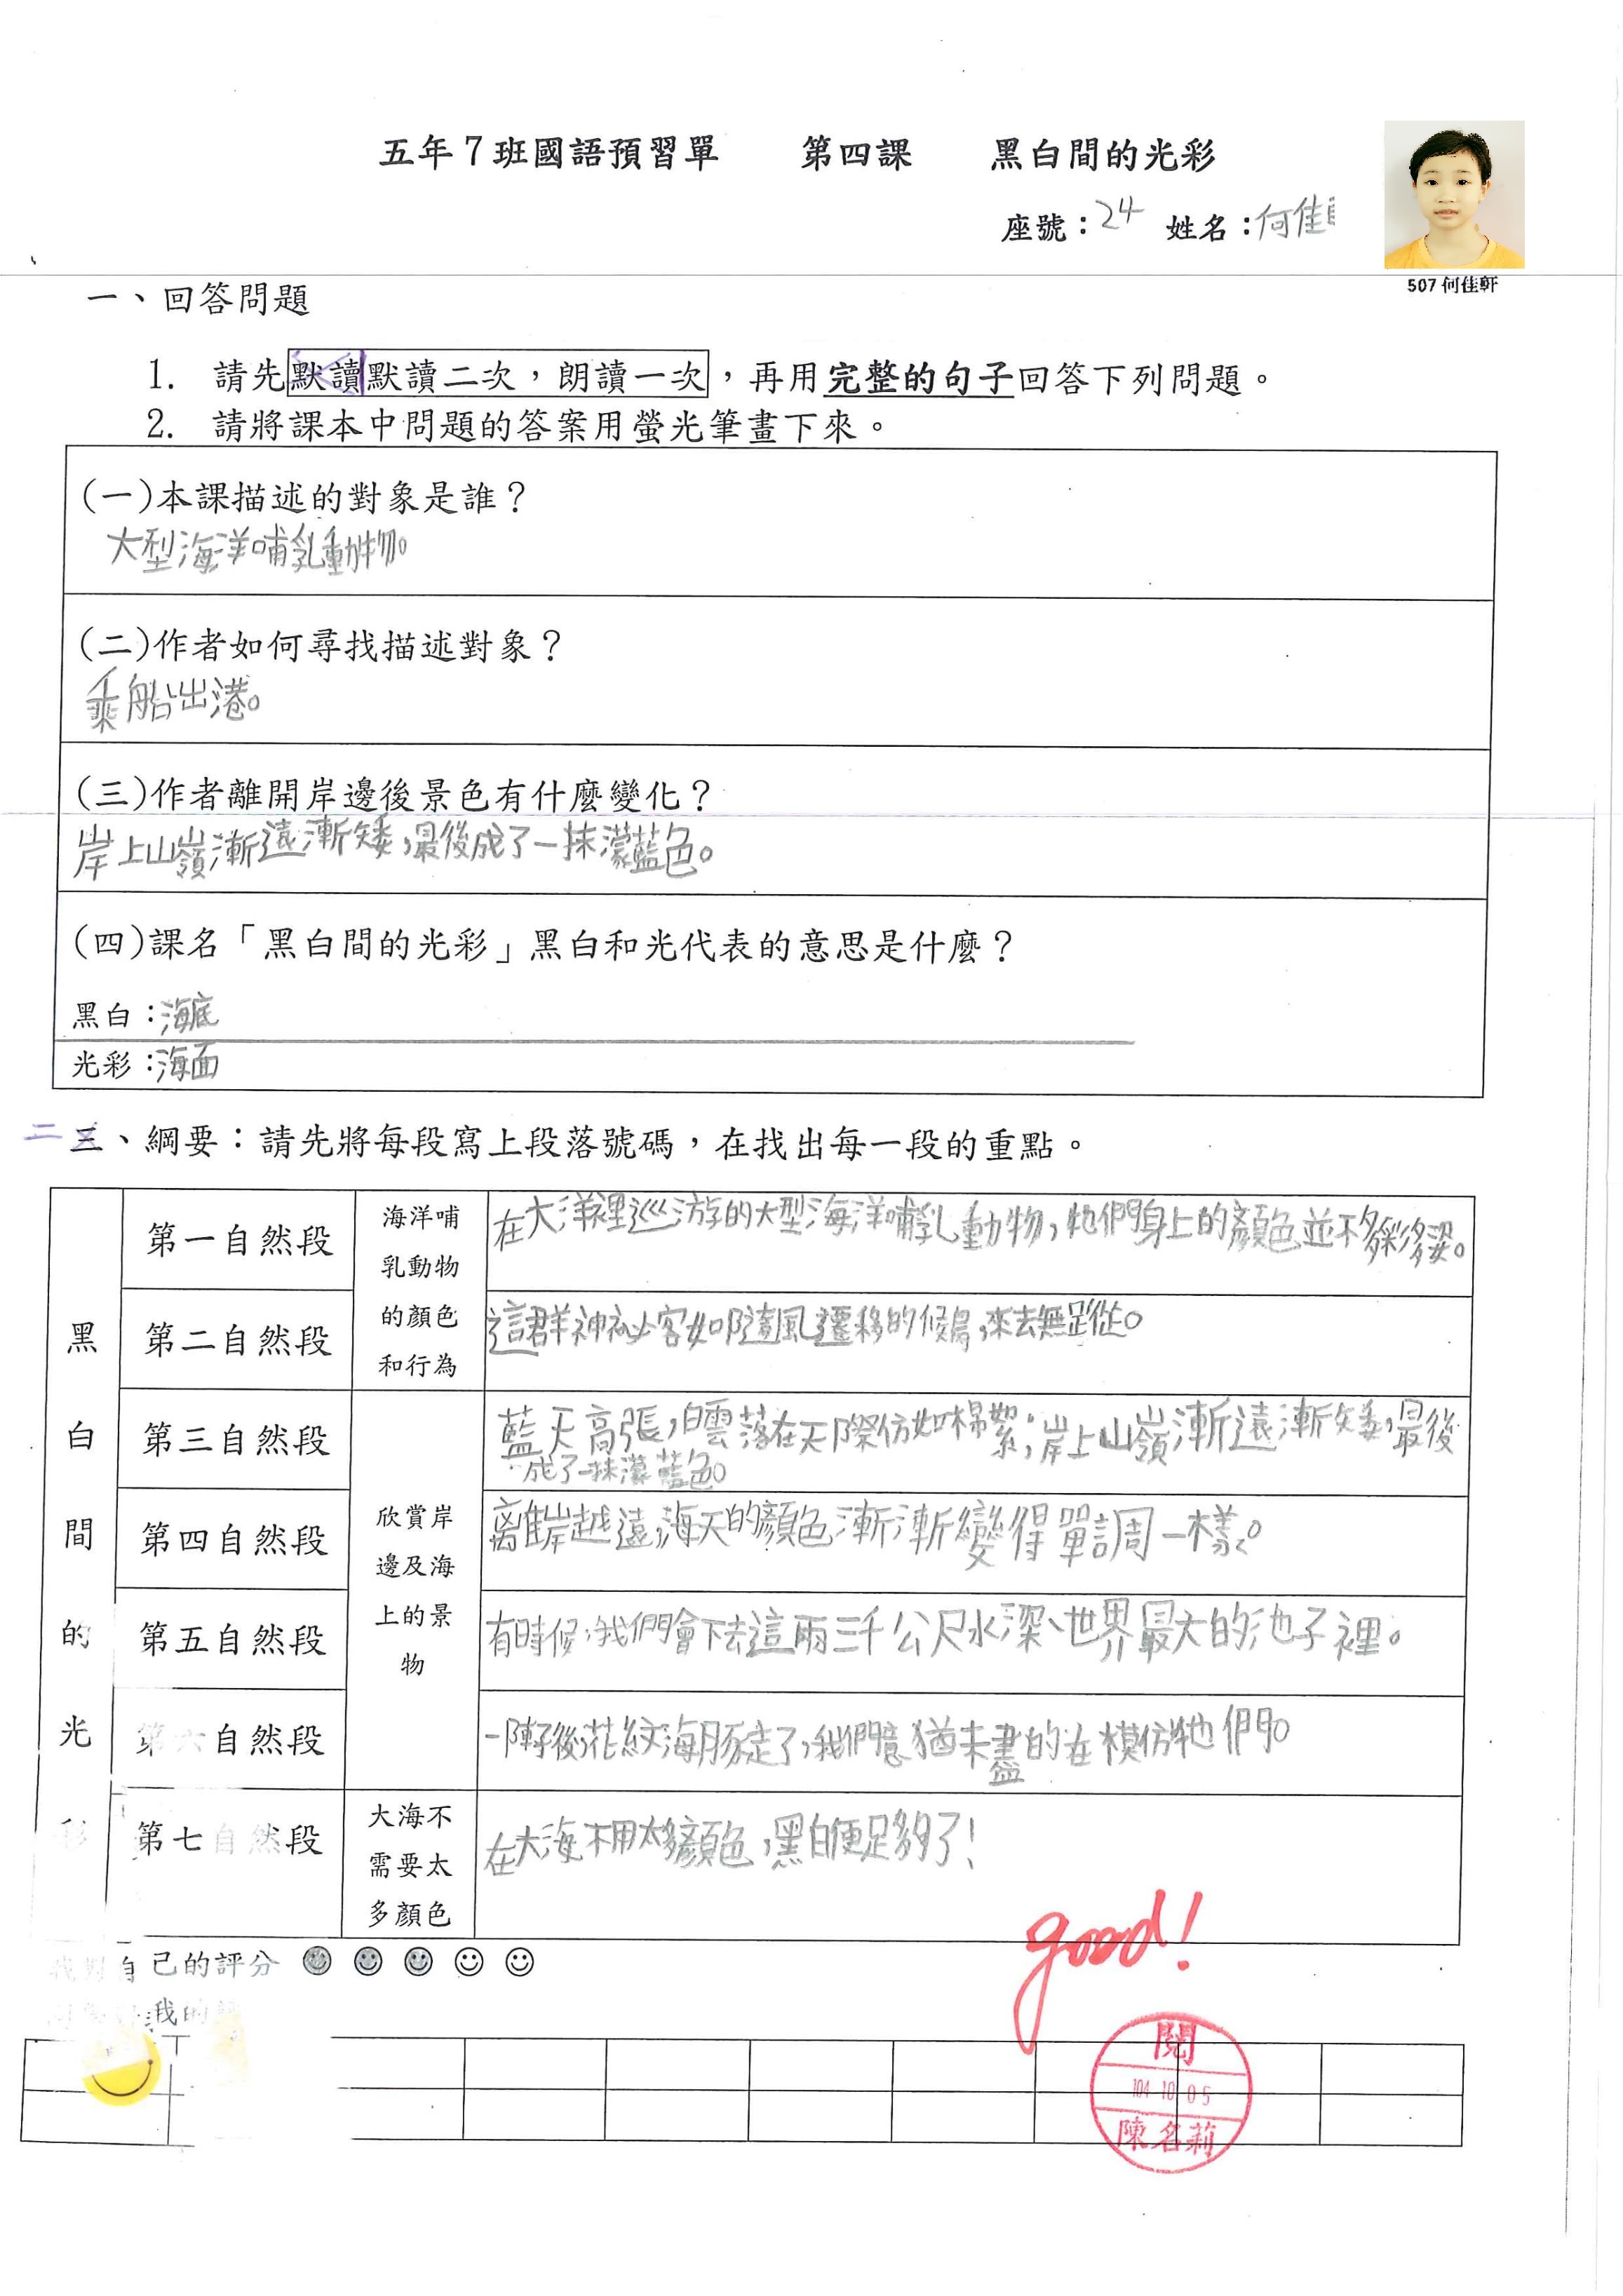 五年7班國語預習單 第四課 黑白間的光彩
座號：24 姓名：何佳
507 何佳軒
一、回答問題
1. 請先默讀默讀二次，朗讀一次，再用完整的句子回答下列問題。
2. 請將課本中問題的答案用螢光筆畫下來。
(一)本課描述的對象是誰？
大型海洋哺乳動物。
(二)作者如何尋找描述對象？
乘船出港。
(三)作者離開岸邊後景色有什麼變化？
岸上山嶺漸遠漸矮，最後成了一抹濛藍色。
(四)課名「黑白間的光彩」黑白和光代表的意思是什麼？
黑白：海底
光彩：海面
二 三、綱要：請先將每段寫上段落號碼，在找出每一段的重點。
黑白間的光彩
第一自然段
海洋哺乳動物的顏色和行為
在大洋裡巡游的大型海洋哺乳動物，牠們身上的顏色並不多彩多姿。
第二自然段
這群神祕客如隨風遷移的候鳥，來去無蹤。
第三自然段
欣賞岸邊及海上的景物
藍天高張，白雲落在天際仿如棉絮；岸上山嶺漸遠漸矮，最後
成了一抹濛藍色。
第四自然段
離岸越遠，海天的顏色漸漸變得單調一樣。
第五自然段
有時候，我們會下去這兩三千公尺水深、世界最大的池子裡。
第六自然段
一陣子後，花紋海豚走了，我們意猶未盡的在模仿牠們。
第七自然段
大海不需要太多顏色
在大海不用太多顏色，黑白便足夠了！
我對自己的評分
我的
good!
閱
104 10 05
陳名莉